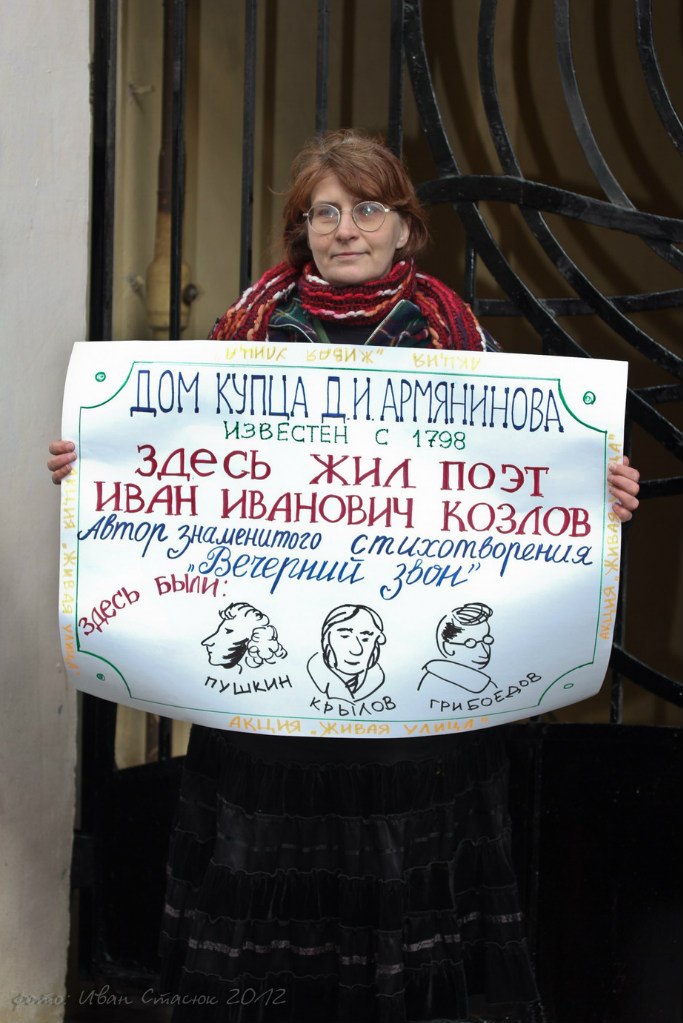 АКЦИЯ „ЖИВАЯ УЛИЦА"
ДОМ КУПЦА Д.И.АРМЯНИНОВА
ИЗВЕСТЕН С 1798
ЗДЕСЬ ЖИЛ ПОЭТ
ИВАН ИВАНОВИЧ КОЗЛОВ
Автор знаменитого стихотворения
„Вечерний звон"
ЗДЕСЬ БЫЛИ:
ПУШКИН
КРЫЛОВ
ГРИБОЕДОВ
АКЦИЯ „ЖИВАЯ УЛИЦА"
АКЦИЯ „ЖИВАЯ УЛИЦА"
АКЦИЯ „ЖИВАЯ УЛИЦА"
фото: Иван Стасюк 2012